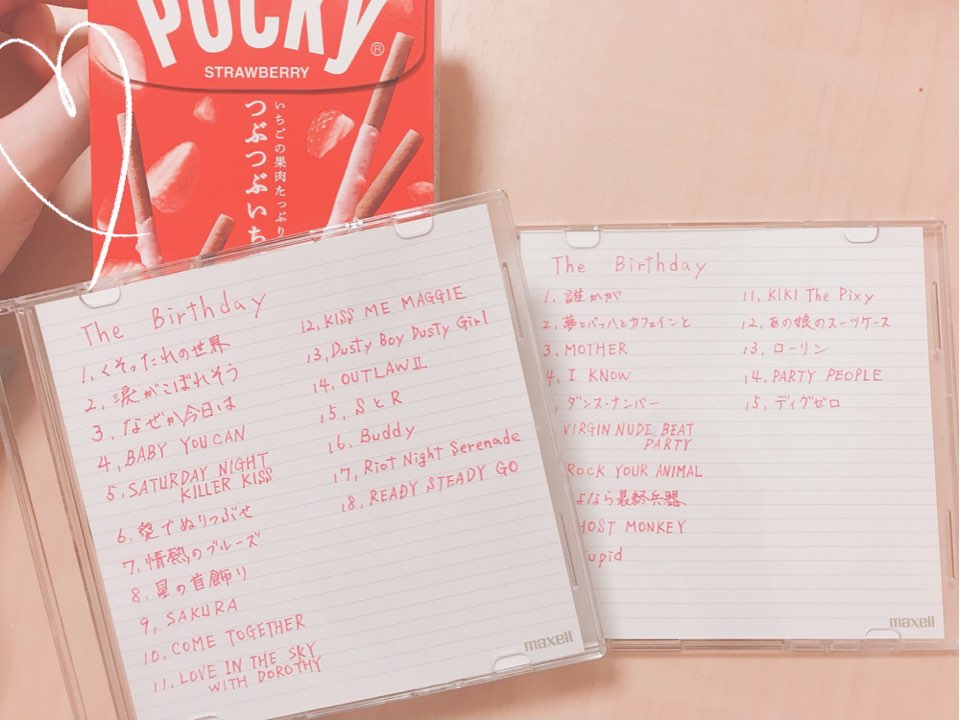 POCKY®
STRAWBERRY
いちごの果肉たっぷり
つぶつぶいち
The Birthday
1. くそったれの世界
2. 涙がこぼれそう
3. なぜか今日は
4. BABY YOU CAN
5. SATURDAY NIGHT
KILLER KISS
6. 愛でぬりつぶせ
7. 情熱のブルーズ
8. 星の首飾り
9. SAKURA
10. COME TOGETHER
11. LOVE IN THE SKY
WITH DOROTHY
12. KISS ME MAGGIE
13. Dusty Boy Dusty Girl
14. OUTLAW II
15. SとR
16. Buddy
17. Riot Night Serenade
18. READY STEADY GO
maxell
The Birthday
1. 誰かが
2. 夢とバッハとカフェインと
3. MOTHER
4. I KNOW
, ダンス・ナンバー
VIRGIN NUDE BEAT
PARTY
ROCK YOUR ANIMAL
よなら最終兵器
HOST MONKEY
tupid
11. KIKI The Pixy
12. あの娘のスーツケース
13. ローリン
14. PARTY PEOPLE
15. ディグゼロ
maxell